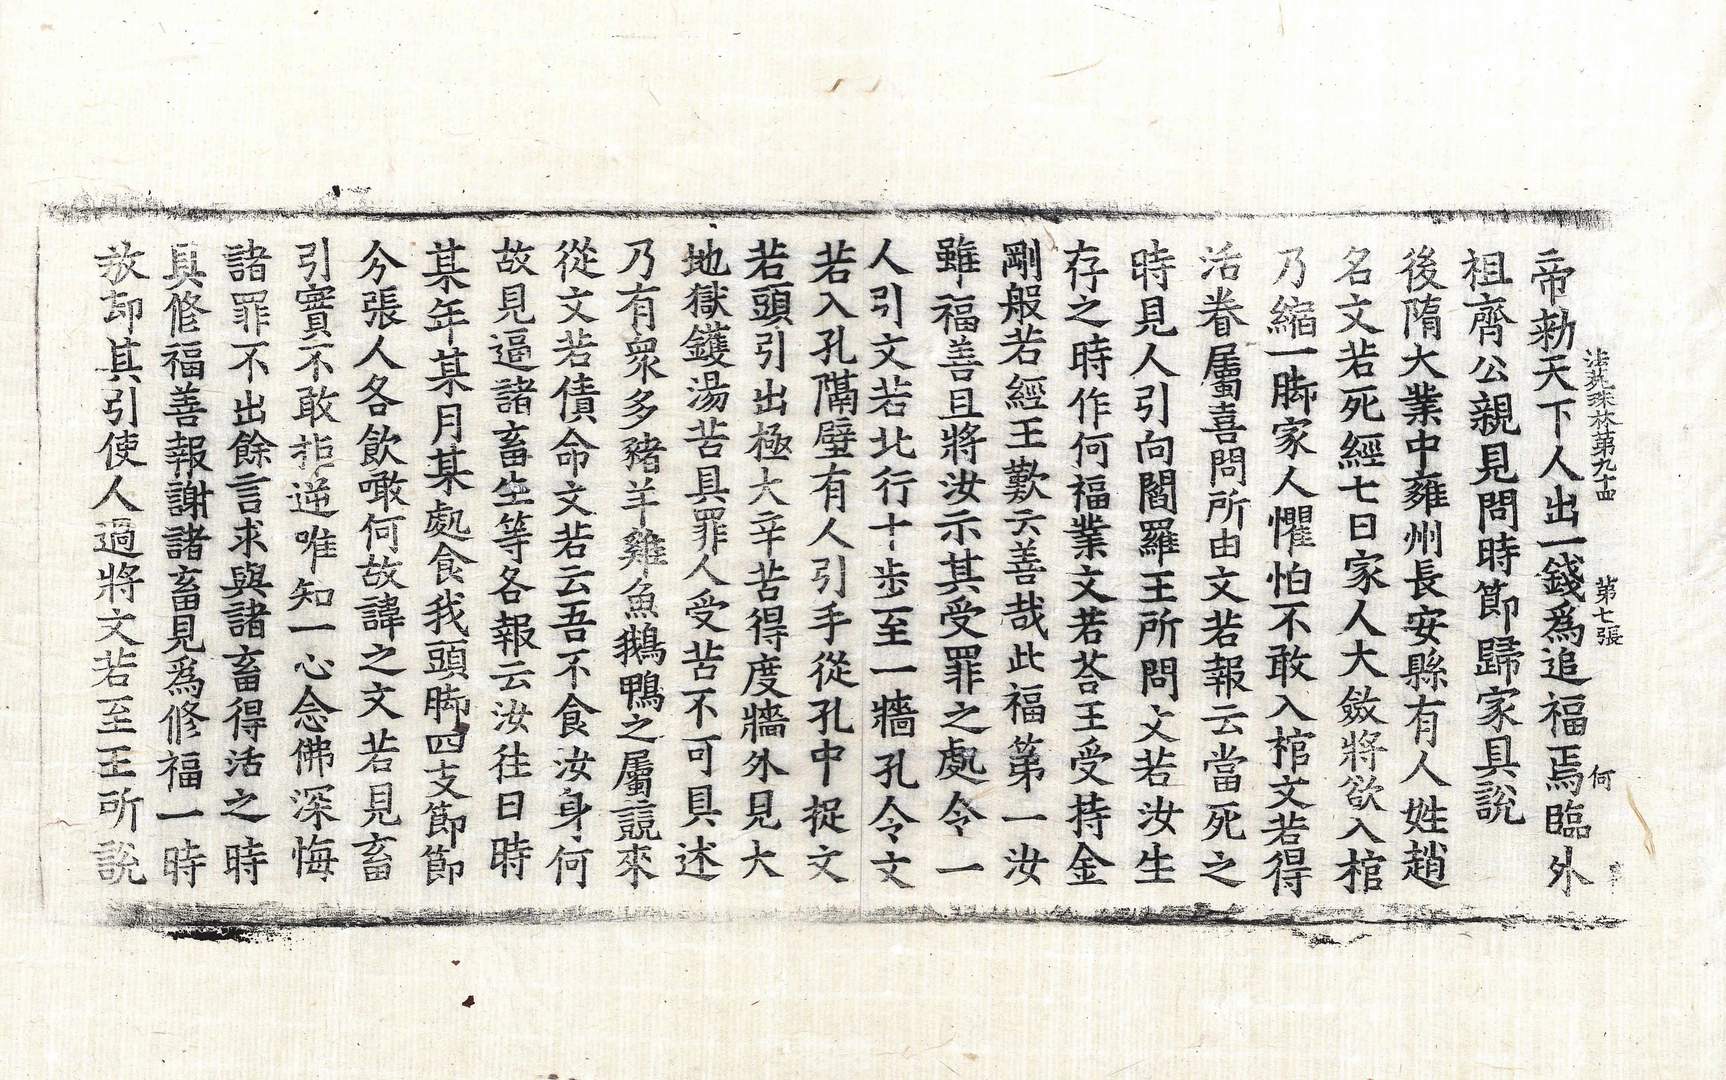 法苑珠林第九十四 第七張 何
帝勑天下人出一錢爲追福焉臨外
祖齊公親見問時節歸家具說
後隋大業中雍州長安縣有人姓趙
名文若死經七日家人大斂將欲入棺
乃縮一脚家人懼怕不敢入棺文若得
活眷屬喜問所由文若報云當死之
時見人引向閻羅王所問文若汝生
存之時作何福業文若荅王受持金
剛般若經王歎云善哉此福第一汝
雖福善且將汝示其受罪之處令一
人引文若北行十步至一牆孔令文
若入孔隔壁有人引手從孔中捉文
若頭引出極大辛苦得度牆外見大
地獄鑊湯苦具罪人受苦不可具述
乃有衆多豬羊雞魚鵝鴨之屬競來
從文若債命文若云吾不食汝身何
故見逼諸畜生等各報云汝往日時
某年某月某處食我頭脚四支節節
分張人各飲噉何故諱之文若見畜
引實不敢拒逆唯知一心念佛深悔
諸罪不出餘言求與諸畜得活之時
具修福善報謝諸畜見爲修福一時
放却其引使人過將文若至王所說